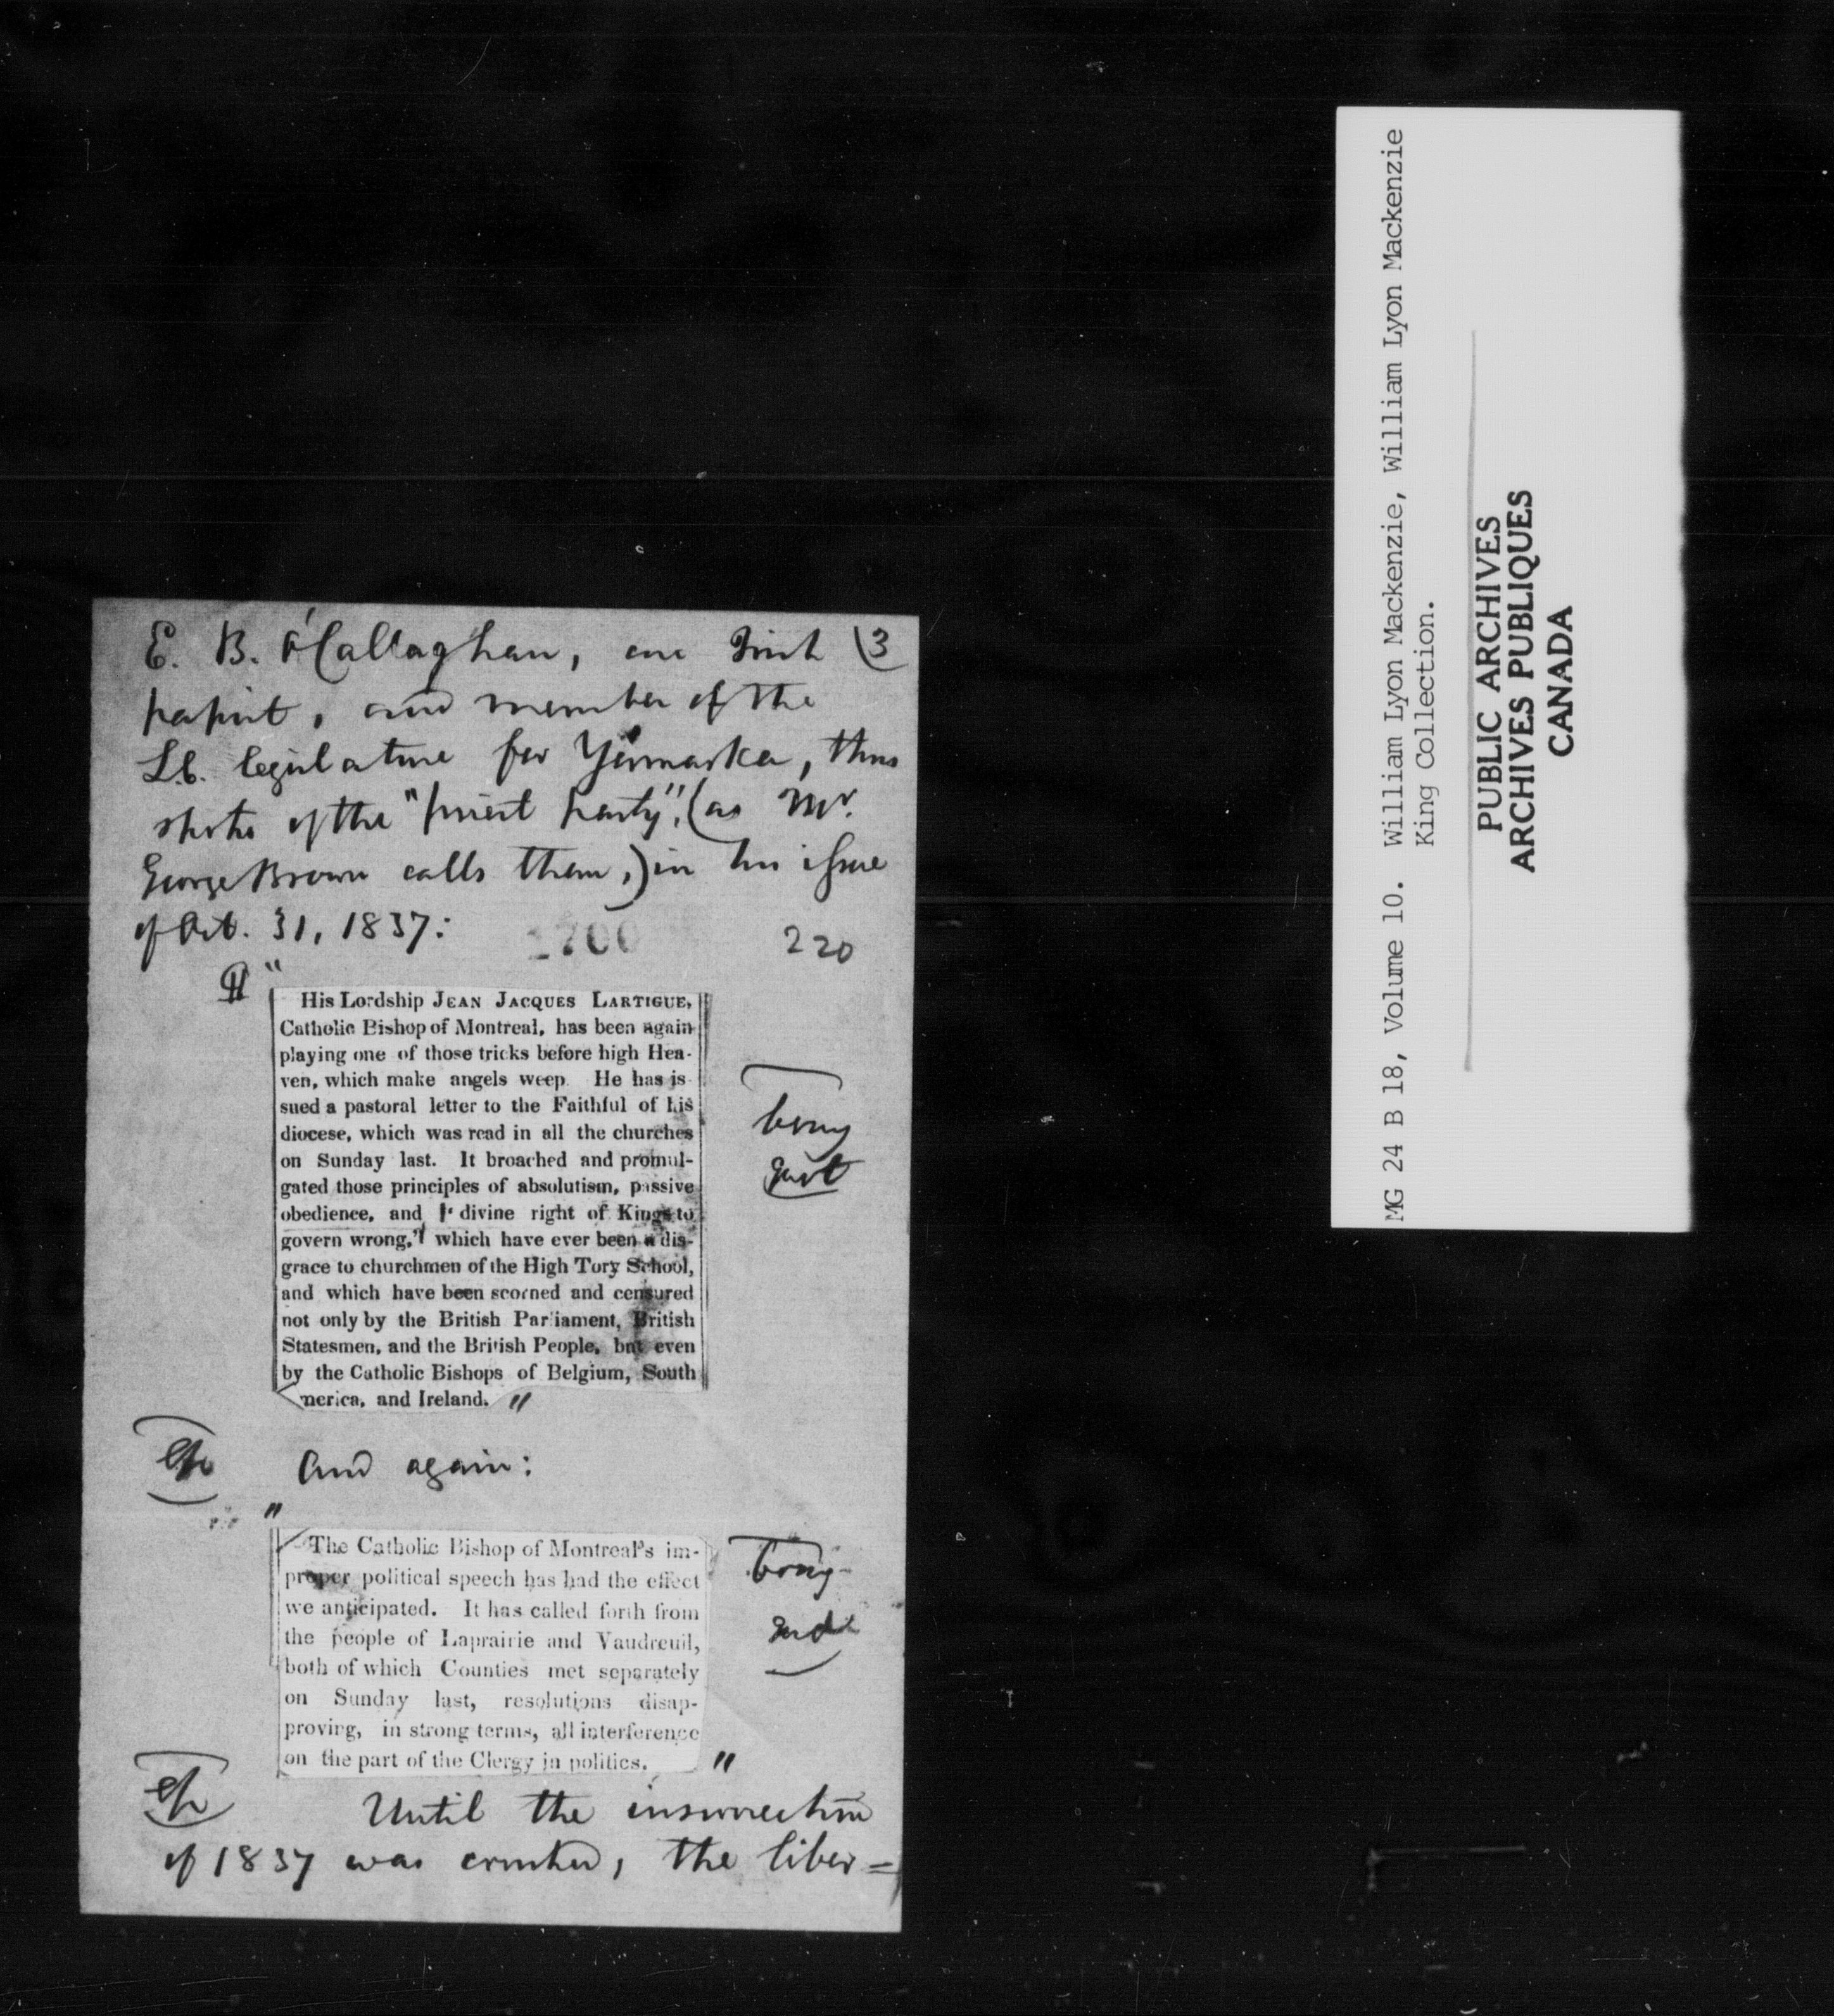 E. B. O'Callaghan, an Irish 3
papist, and member of the
L.C. legislature for Yamaska, thus
spoke of the "priest party", (as Mr.
George Brown calls them,) in his issue
of Oct. 31, 1837:
1700 220
"
His Lordship JEAN JACQUES LARTIGUE,
Catholic Bishop of Montreal, has been again
playing one of those tricks before high Hea-
ven, which make angels weep. He has is-
sued a pastoral letter to the Faithful of his
diocese, which was read in all the churches
on Sunday last. It broached and promul-
gated those principles of absolutism, passive
obedience, and " divine right of Kings to
govern wrong," which have ever been a dis-
grace to churchmen of the High Tory School,
and which have been scorned and censured
not only by the British Parliament, British
Statesmen, and the British People, but even
by the Catholic Bishops of Belgium, South
merica, and Ireland. "
And again:
"
The Catholic Bishop of Montreal's im-
proper political speech has had the effect
we anticipated. It has called forth from
the people of Laprairie and Vaudreuil,
both of which Counties met separately
on Sunday last, resolutions disap-
proving, in strong terms, all interference
on the part of the Clergy in politics. "
Until the insurrection
of 1837 was crushed, the liber=
MG 24 B 18, Volume 10. William Lyon Mackenzie, William Lyon Mackenzie
King Collection.
PUBLIC ARCHIVES
ARCHIVES PUBLIQUES
CANADA